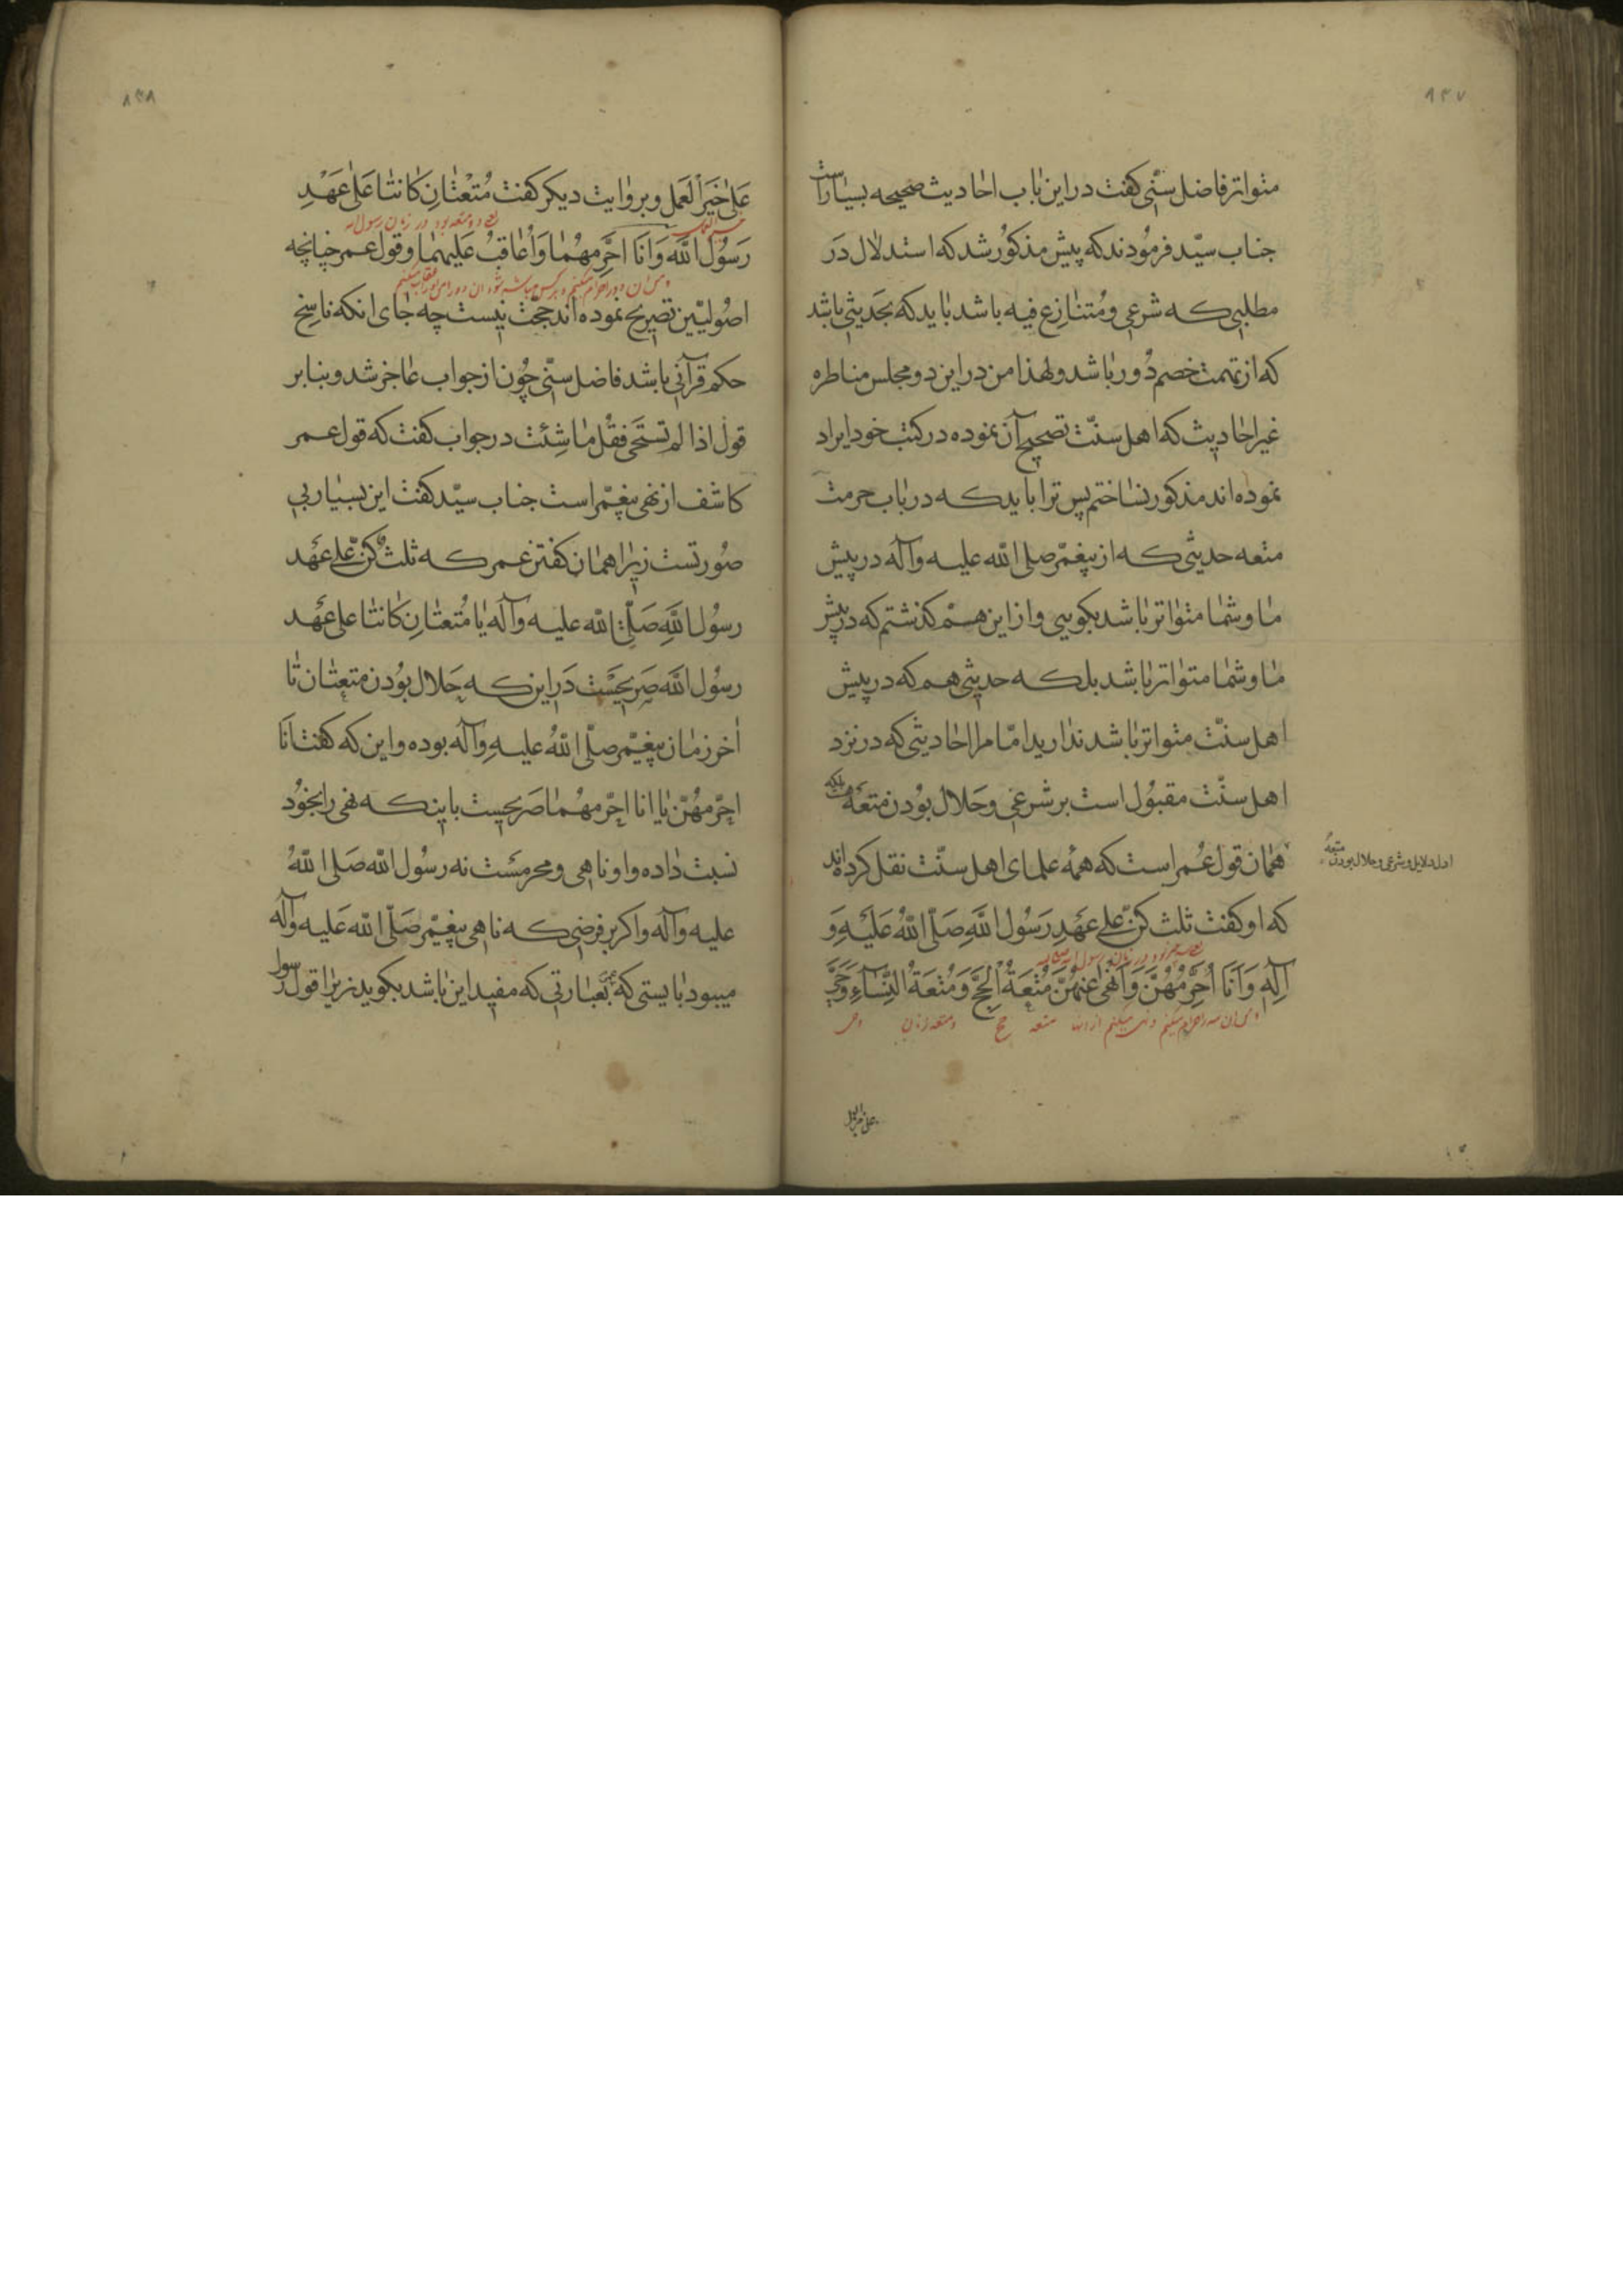 ۸۳۷
متواتر فاضل سنّی کفت در این باب احادیث صحیحه بسیار است
جناب سیّد فرمودند که پیش مذکور شد که استدلال در
مطلبی که شرعی و متنازع فیه باشد باید که بحدیثی باشد
که از تهمت خصم دور باشد و لهذا من در این دو مجلس مناظره
غیر احادیث که اهل سنّت تصحیح آن نموده در کتب خود ایراد
نموده اند مذکور نساختم پس ترا باید که در باب حرمت
متعه حدیثی که از پیغمبر صلی الله علیه وآله در پیش
ما و شما متواتر باشد بکویی و از این هم کذشتم که در پیش
ما و شما متواتر باشد بلکه حدیثی هم که در پیش
اهل سنّت متواتر باشد ندارید امّا مرا احادیثی که در نزد
اهل سنّت مقبول است بر شرعی و حلال بودن متعه
همان قول عمر است که همه علمای اهل سنّت نقل کرده اند
که او کفت ثلث کنّ علی عَهدِ رَسُولِ اللّهِ صَلّی اللّهُ عَلَیهِ وَ
آلِهِ وَاَنَا اُحَرِّمُهُنَّ وَاَنهی عَنهُنَّ مُتعَةُ الحَجِّ وَمُتعَةُ النِّسآءِ وَحَیَّ
متعه حج و متعه زنان
علی خیر العمل
۸۳۸
عَلی خَیرِ العَمَل و بروایت دیکر کفت مُتعَتانِ کانَتا عَلی عَهدِ
یعنی دو متعه بود در زمان رسول الله
رَسُولِ اللّه وَاَنَا اُحَرِّمهُما وَاُعاقِبُ عَلَیهِما و قول عمر چنانچه
اصولیّین تصریح نموده اند حجّت نیست چه جای انکه ناسخ
حکم قرآنی باشد فاضل سنّی چون از جواب عاجز شد و بنابر
قول اذا لم تستحی فقُل ما شِئت در جواب کفت که قول عمر
کاشف از نهی پیغمبر است جناب سیّد کفت این بسیار بی
صورتست زیرا همان کفتن عمر که ثلث کنّ علی عَهد
رسول اللّه صَلّی اللّه علیه وآله یا مُتعَتانِ کانَتا علی عهد
رسول اللّه صَریحست در این که حَلال بودن متعتان تا
آخر زمان پیغمبر صلّی اللّهُ علیهِ وآله بوده و این که کفت اَنَا
احرّمهُنّ یا انا احرّمهُما صَریحست باینکه نهی را بخود
نسبت داده و او ناهی و محرمست نه رسول اللّه صَلی اللّهُ
علیه وآله و اکر بر فرضی که ناهی پیغمبر صَلّی اللّه عَلیه وآله
میبود بایستی که عمر بعبارتی که مفید این باشد بکوید زیرا قول رسول